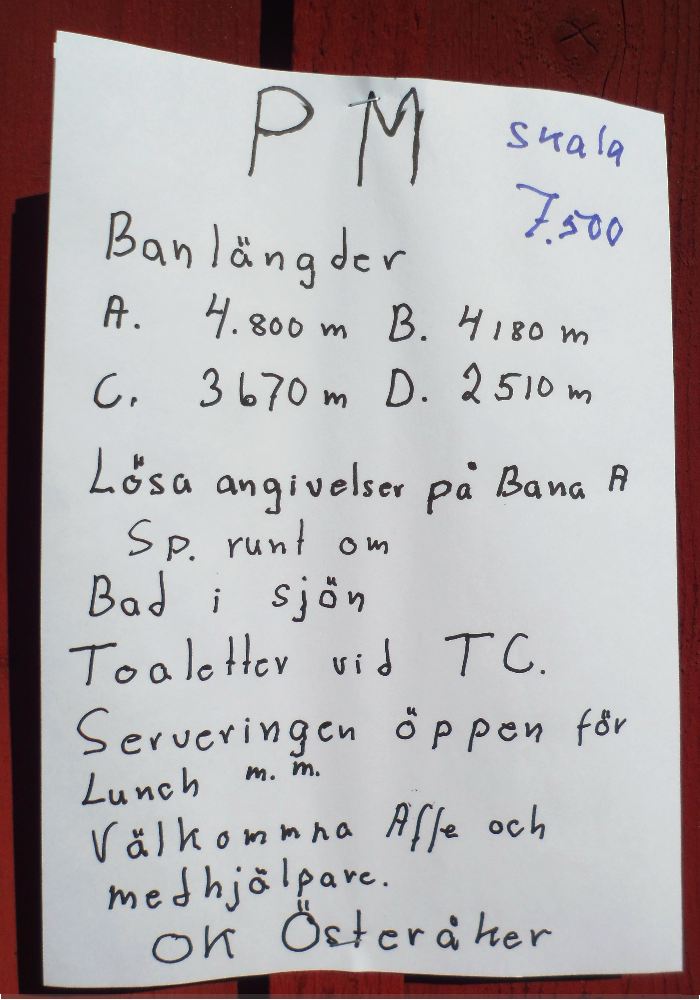 PM
skala
7.500
Banlängder
A. 4.800 m B. 4180 m
C. 3670 m D. 2510 m
Lösa angivelser på Bana A
Sp. runt om
Bad i sjön
Toaletter vid TC.
Serveringen öppen för
Lunch m.m.
Välkommna Affe och
medhjälpare.
OK Österåker